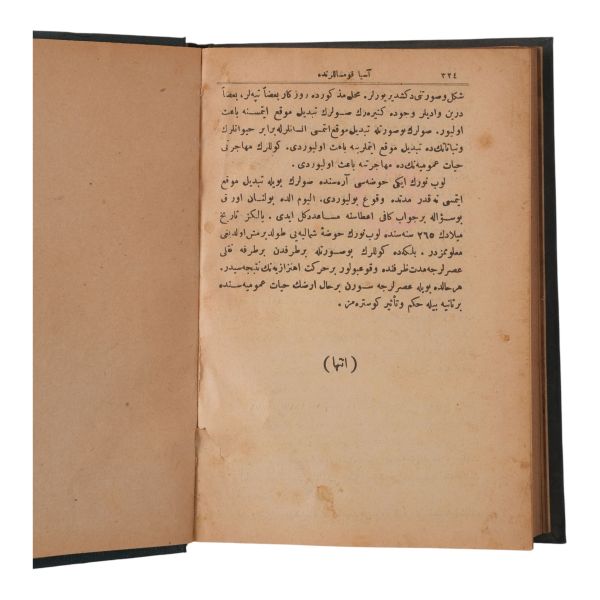 ٣٢٤ آسيا قومساللرنده
شكل و صورتنی دكشديريورلر. محلی مذكورده روزكار بعضاً تپه‌لر، بعضاً
درين واديلر وجوده كتيره‌رك صولرك تبديل موقع ايتمسنه باعث
اوليور. صولرك بو صورتله تبديل موقع ايتمسی انسانلرله برابر حيوانلرك
و نباتاتك ده تبديل موقع ايتملرينه باعث اوليوردی. كوللرك مهاجرتی
حيات عموميه‌نك ده مهاجرتنه باعث اوليوردی.
لوب نورك ايكی حوضه‌سی آره‌سنده صولرك بويله تبديل موقع
ايتمسی نه قدر مدتده وقوع بوليوردی. اليوم الده بولنان اوراق
بو سؤاله بر جواب كافی اعطاسنه مساعد دكل ايدی. يالكز تاريخ
ميلادك ٢٦٥ سنه‌سنده لوب نورك حوضهٔ شماليه‌يی طولديرمش اولديغنی
معلومزدر. بلكه‌ده كوللرك بو صورتله بر طرفدن بر طرفه نقلی
عصرلرجه مدت ظرفنده وقوعبولور بر حركت اهتزازيه‌نك نتيجه‌سيدر.
هر حالده بويله عصرلرجه سورن بر حال ارضك حيات عموميه‌سنده
بر ثانيه بيله حكم و تأثير كوستره‌مز.
(انتها)